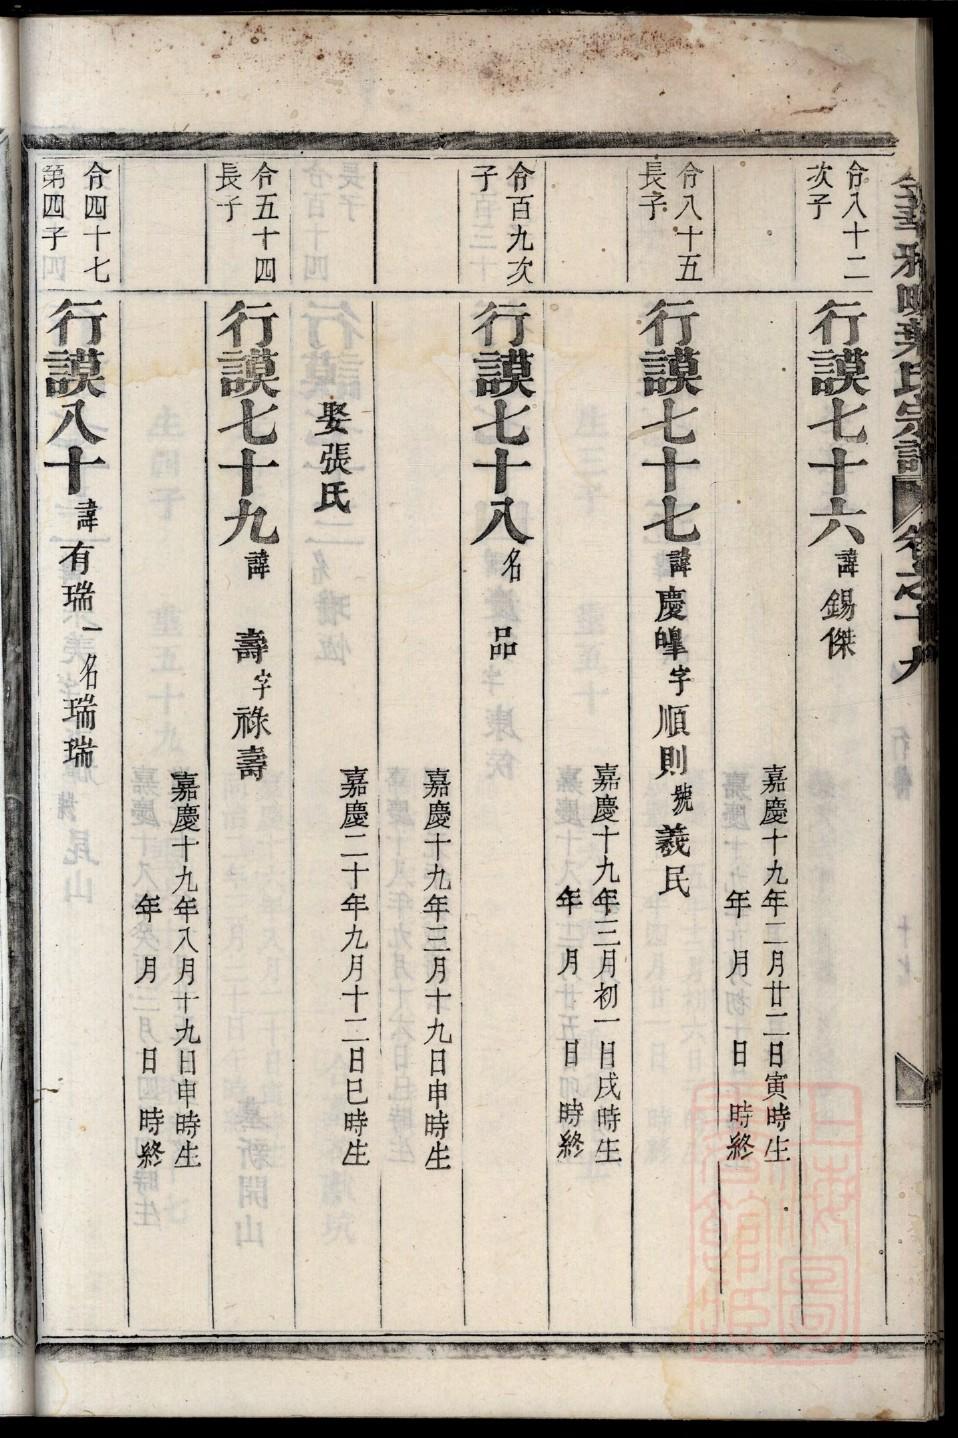 合八十二
次子
行謨七十六 諱 錫傑
嘉慶十九年二月廿二日寅時生
年 月 日 時終
合八十五
長子
行謨七十七 諱 慶㬆 字 順則 號 羲民
嘉慶十九年三月初一日戌時生
年 月 日 時終
合百九次
子
行謨七十八 名 品
嘉慶十九年三月十九日申時生
娶張氏
嘉慶二十年九月十二日巳時生
合五十四
長子
行謨七十九 諱 壽 字 祿壽
嘉慶十九年八月十九日申時生
年 月 日 時終
合四十七
第四子
行謨八十 諱 有瑞 一名 瑞瑞